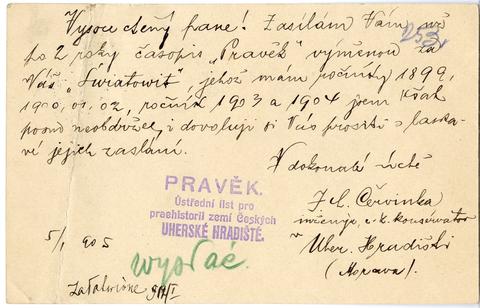 Vysoce ctěný pane! Zasílám Vám již
po 2 roky časopis „Pravěk" výměnou za
Váš „Światowit", jehož mám ročníky 1899,
1900, 01, 02, ročník 1903 a 1904 jsem však
posud neobdržel, i dovoluji si Vás prositi o laska-
vé jejich zaslání.
V dokonalé úctě
253
PRAVĚK.
Ústřední list pro
praehistorii zemí Českých
UHERSKÉ HRADIŠTĚ.
Červinka
inženýr, c. k. konservator
v Uher. Hradišti
(Morava).
5/1 905
wysłać.
Załatwione